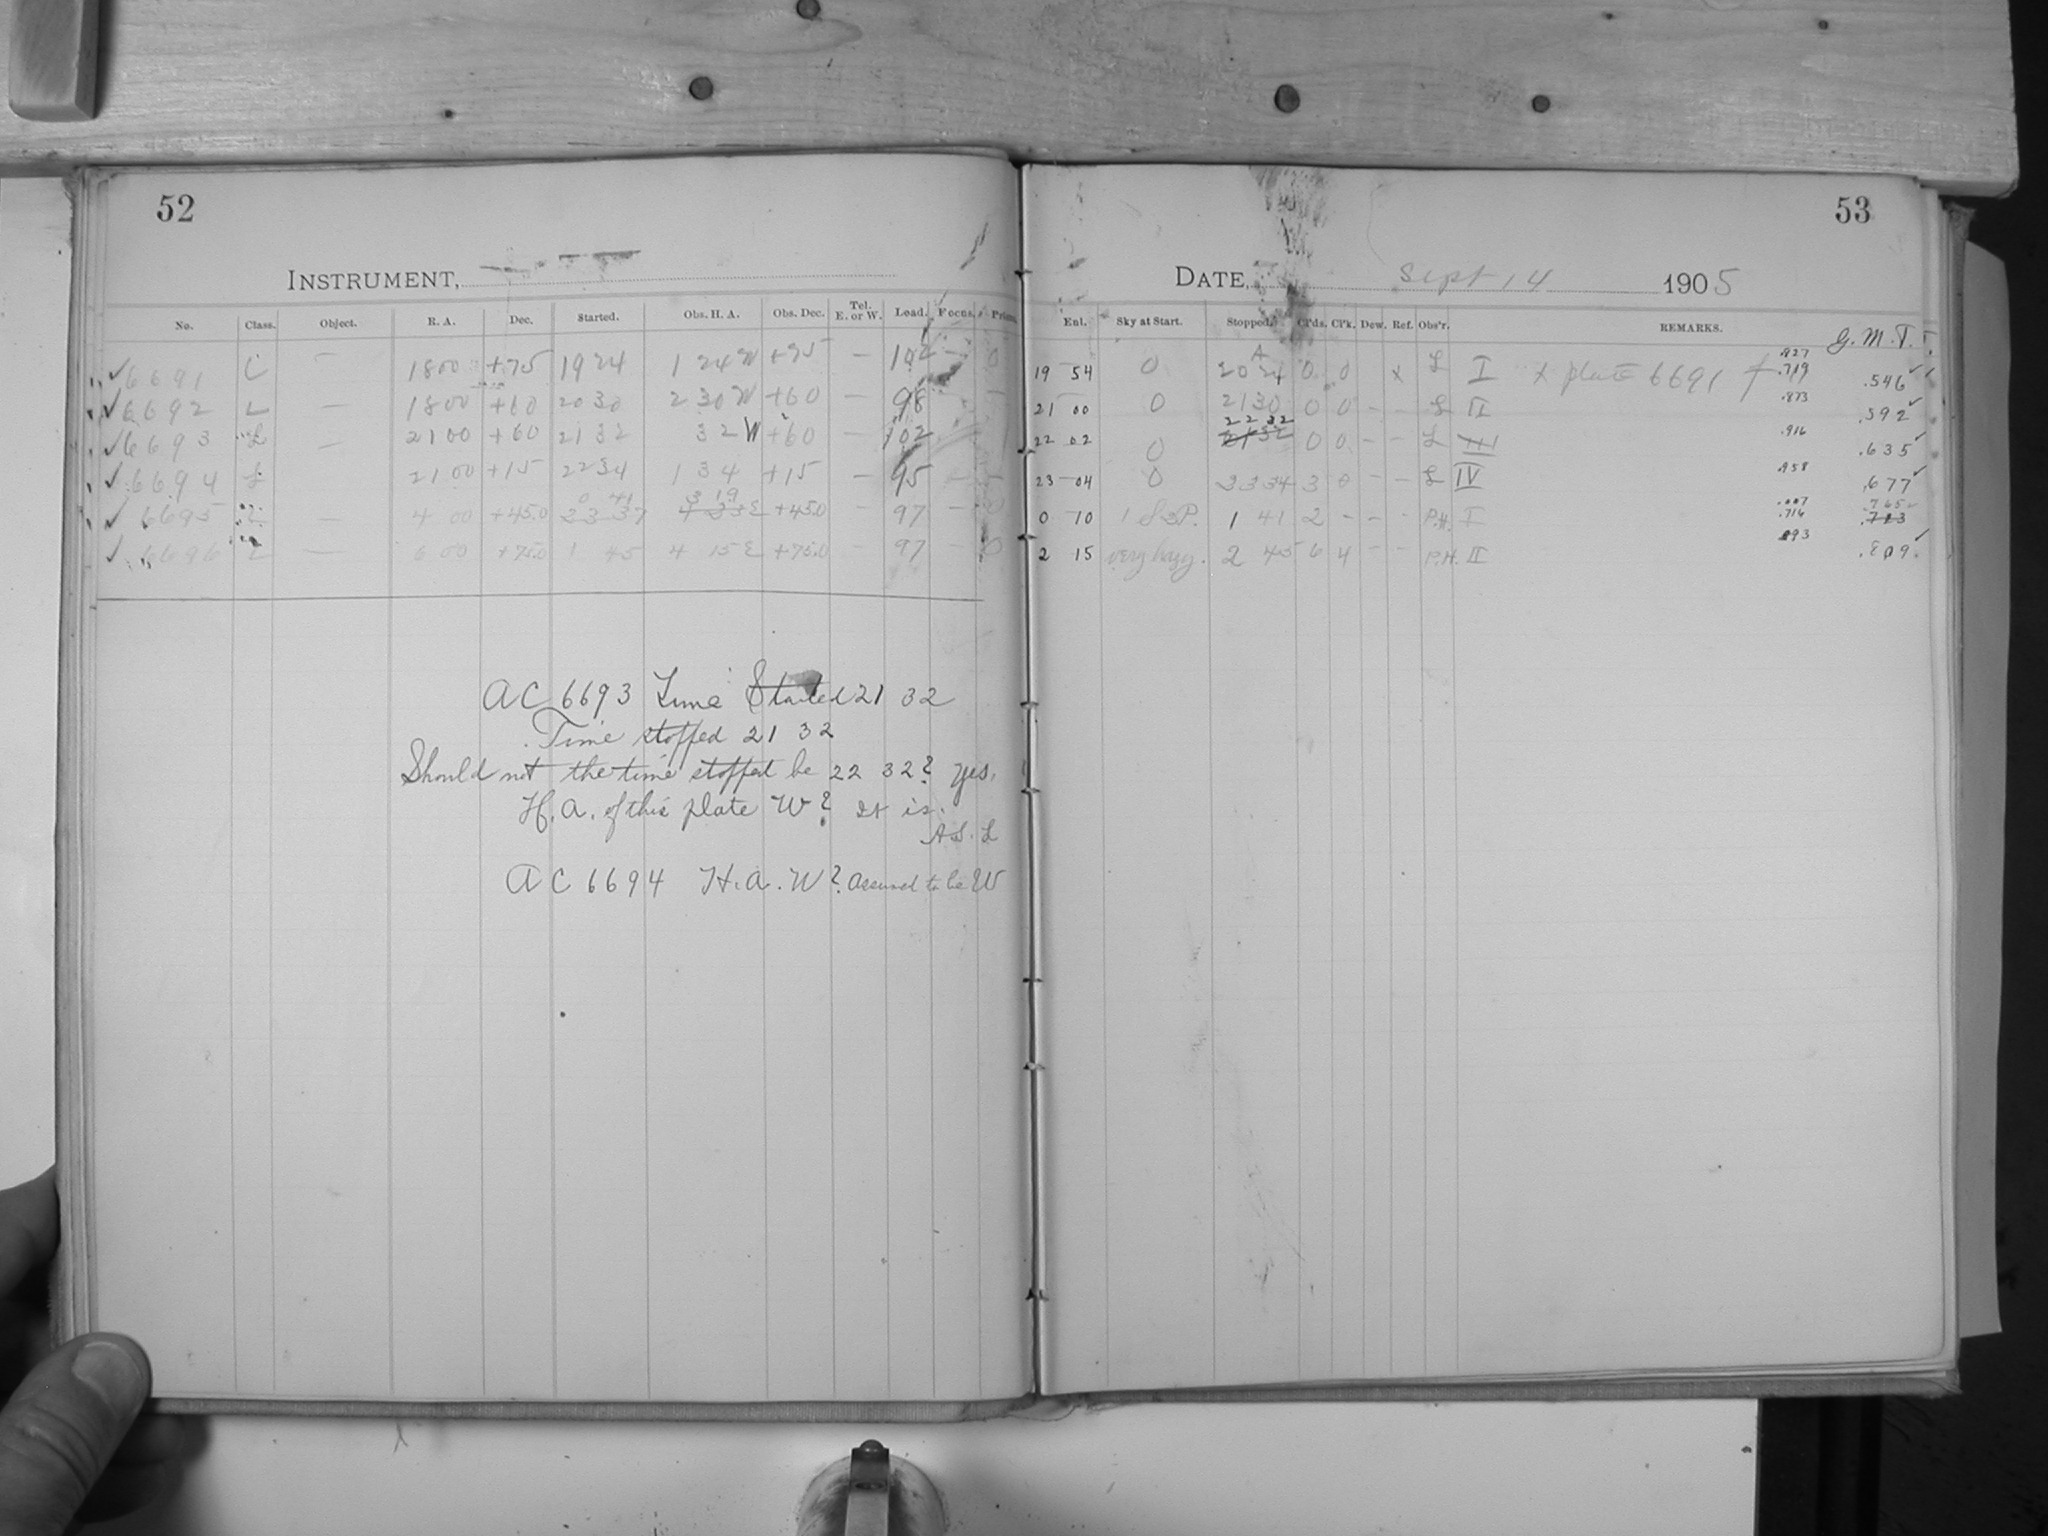 52
INSTRUMENT,
No. Class. Object. R. A. Dec. Started. Obs. H. A. Obs. Dec. Tel. E. or W. Load. Focus.
✓ 6691 L — 18 00 +75 19 24 1 24 W +75 — 102 —
✓ 6692 L — 18 00 +60 20 30 2 30 W +60 — 98
✓ 6693 L — 21 00 +60 21 32 32 W +60 — 102
✓ 6694 L 21 00 +15 22 34 1 34 +15 — 95
0 41 3 19
✓ 6695 L — 4 00 +45.0 23 37 4 23 E +45.0 — 97 — 0
✓ 6696 L — 6 00 +75.0 1 45 4 15 E +75.0 — 97 — 0
AC 6693 Time Started 21 32
Time stopped 21 32
Should not the time stopped be 22 32? yes.
H. A. of this plate W? It is.
A.S. L
AC 6694 H. A. W? assumed to be W
53
DATE, Sept 14 1905
Enl. Sky at Start. Stopped. Cl'ds. Cl'k. Dew. Ref. Obs'r. REMARKS. G. M. T.
.827
19 54 0 20 24 0 0 x L I x plate 6691 f .719 .546 ✓
.873
21 00 0 21 30 0 0 - - L II .592 ✓
22 32 .916
22 02 0 21 32 0 0 - - L III .635 ✓
.958
23 04 0 23 34 3 0 - - L IV .677 ✓
.007 .765
0 10 1 S3P. 1 41 2 - - - P.H. I .716 .713
.893
2 15 very hazy. 2 45 6 4 - - P.H. II .809 ✓